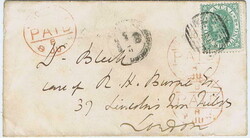 PAID
Dr Bleek
care of R. H. Burne Esq
37 Lincoln's Inn Fields
London
PAID